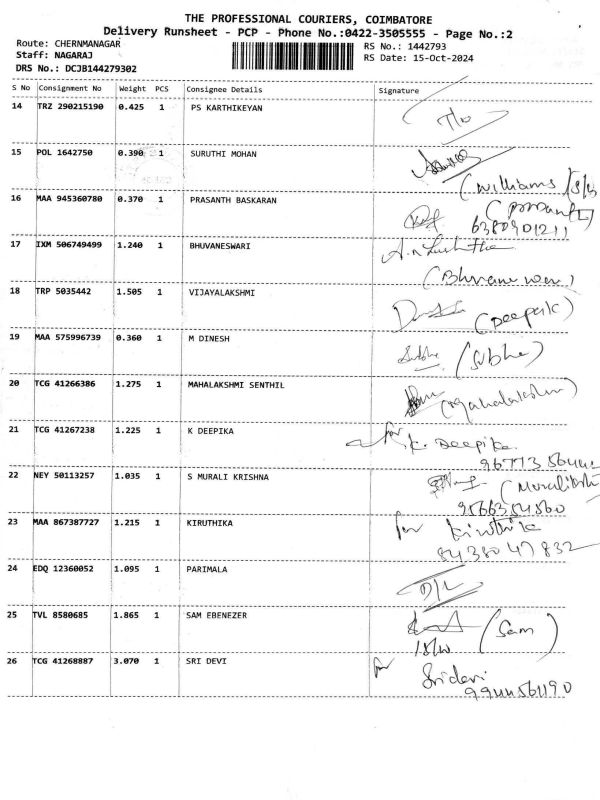 THE PROFESSIONAL COURIERS, COIMBATORE
Delivery Runsheet - PCP - Phone No.:0422-3505555 - Page No.:2
Route: CHERNMANAGAR
RS No.: 1442793
Staff: NAGARAJ
RS Date: 15-Oct-2024
DRS No.: DCJB144279302
S No Consignment No Weight PCS Consignee Details Signature
14 TRZ 290215190 0.425 1 PS KARTHIKEYAN
15 POL 1642750 0.390 1 SURUTHI MOHAN
(Williams)
16 MAA 945360780 0.370 1 PRASANTH BASKARAN
6380901211
17 IXM 506749499 1.240 1 BHUVANESWARI
18 TRP 5035442 1.505 1 VIJAYALAKSHMI
(Deepak)
19 MAA 575996739 0.360 1 M DINESH
Subha (Subha)
20 TCG 41266386 1.275 1 MAHALAKSHMI SENTHIL
(Mahalakshmi)
21 TCG 41267238 1.225 1 K DEEPIKA for K. Deepika
22 NEY 50113257 1.035 1 S MURALI KRISHNA
9566354560
23 MAA 867387727 1.215 1 KIRUTHIKA for Kiruthika
8438047832
24 EDQ 12360052 1.095 1 PARIMALA D/L
25 TVL 8580685 1.865 1 SAM EBENEZER (Sam)
15/10
26 TCG 41268887 3.070 1 SRI DEVI for Sridevi
9944561190